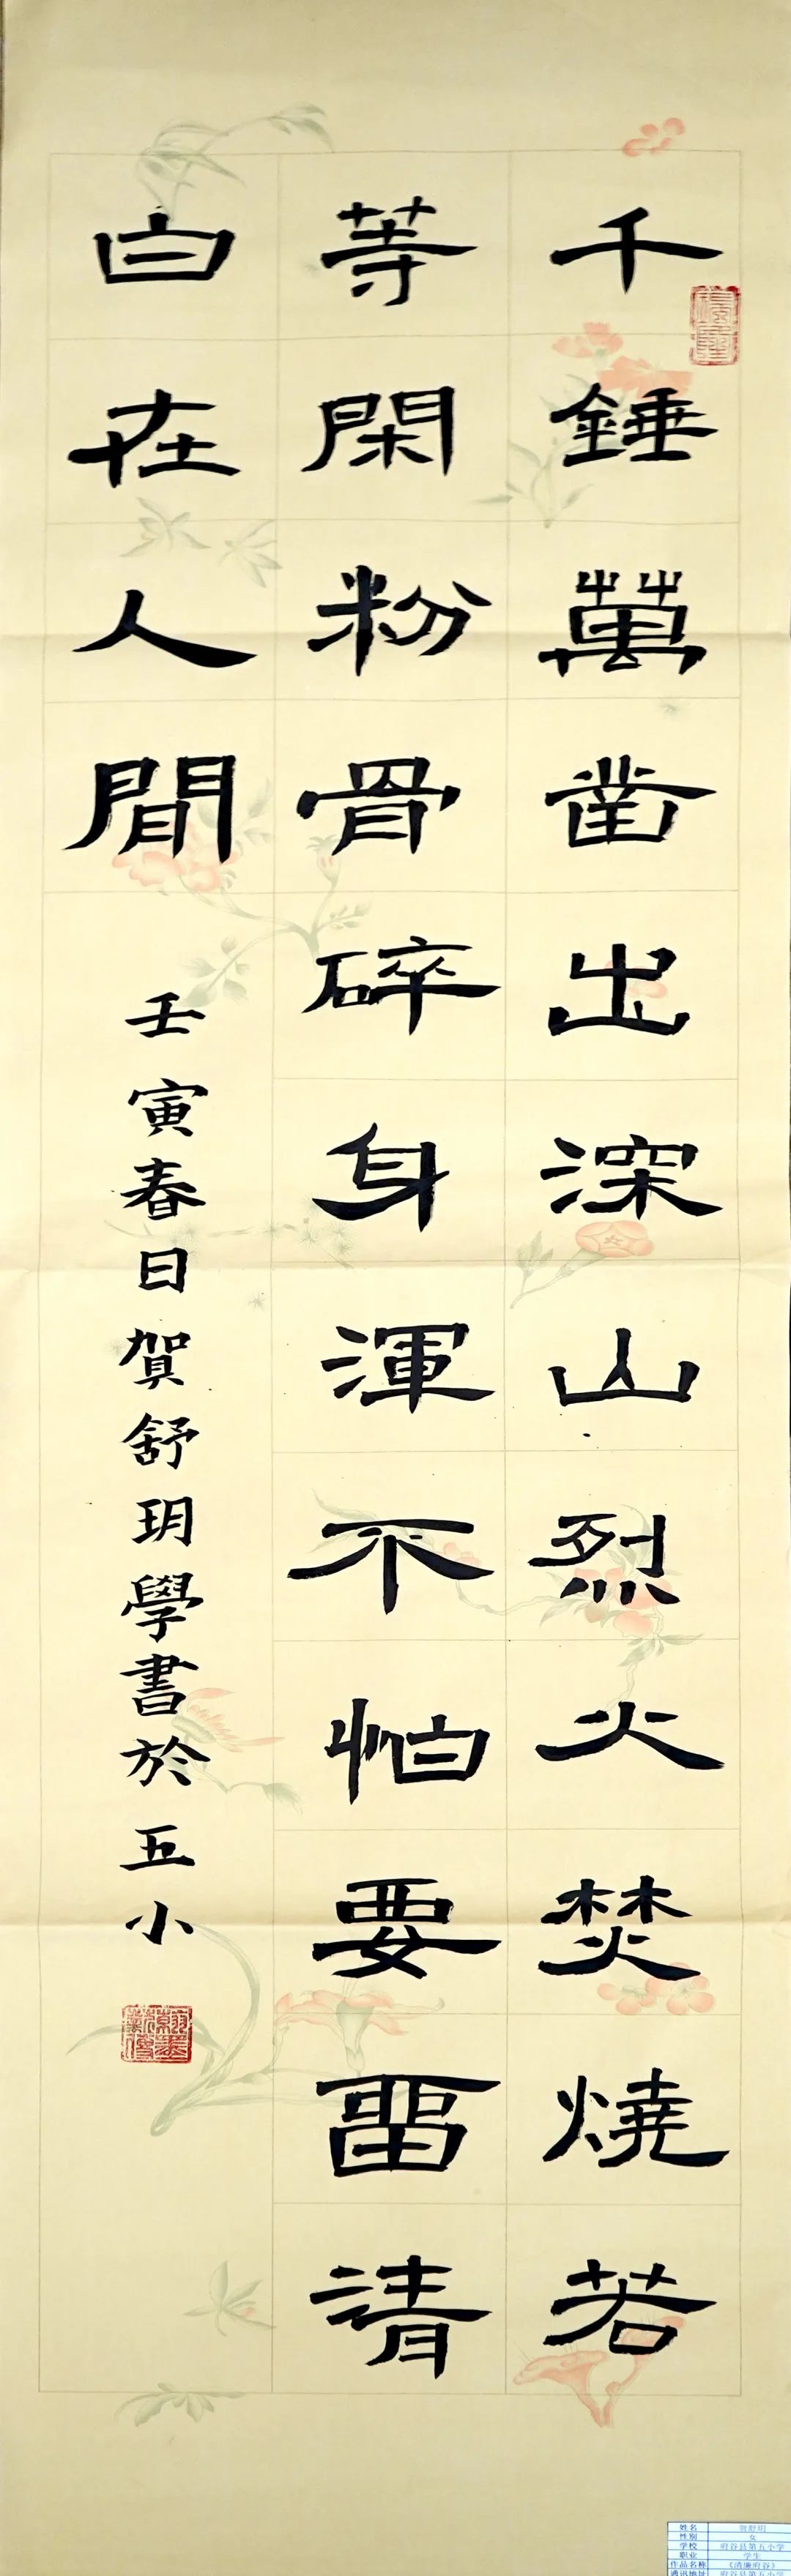 千錘萬凿出深山烈火焚燒若
等閑粉骨碎身渾不怕要留清
白在人間
壬寅春日賀舒玥學書於五小
姓名 贺舒玥
性别 女
学校 府谷县第五小学
职业 学生
作品名称 《清廉府谷》
通讯地址 府谷县第五小学